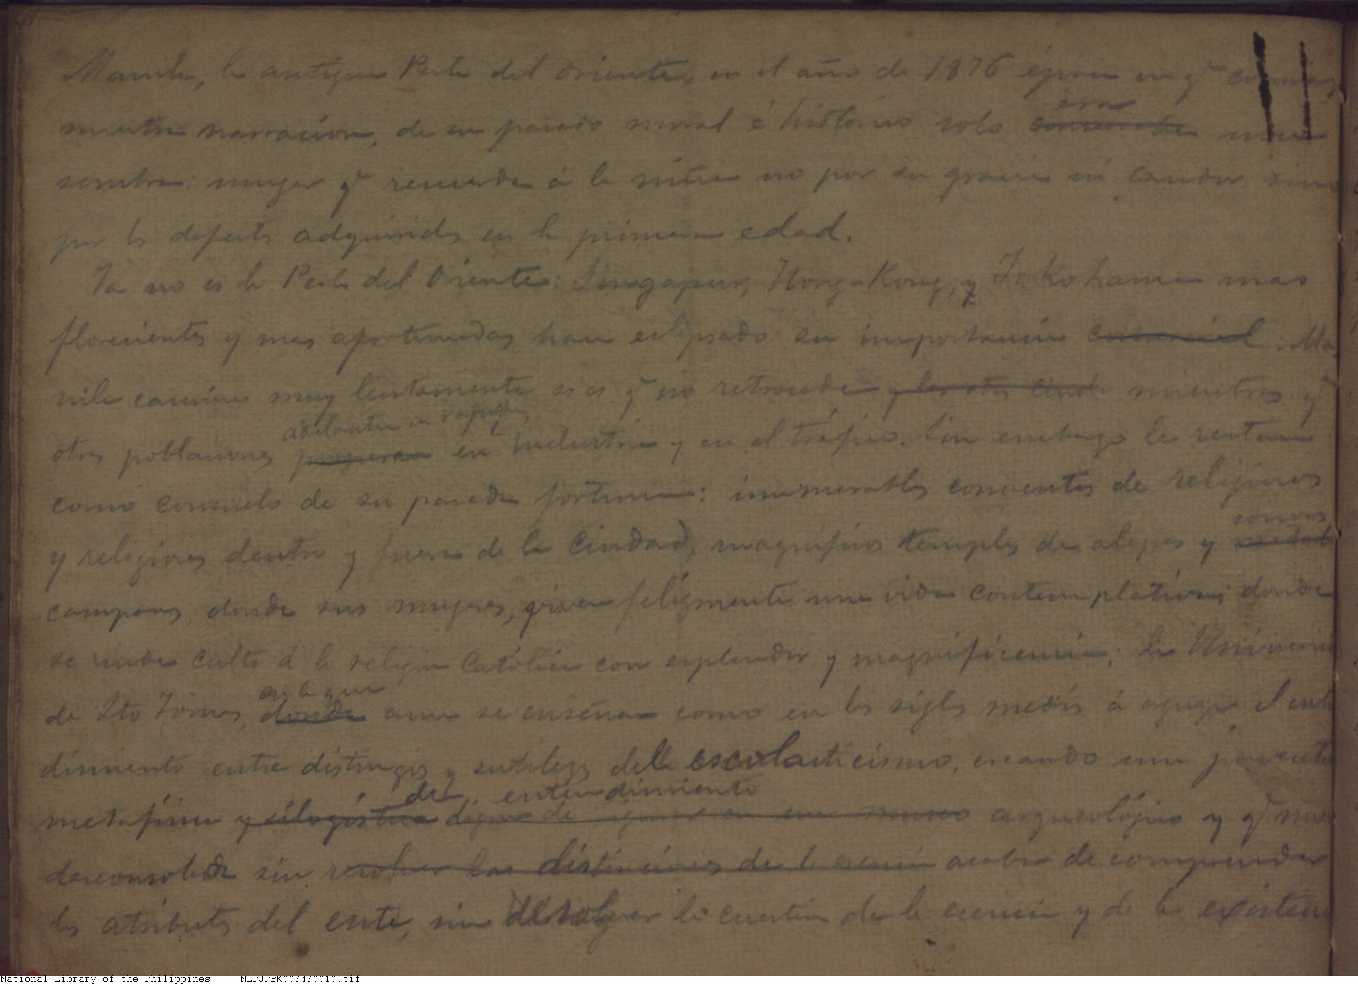 Manila, la antigua Perla del Oriente, en el año de 1876 época en qᵉ comienza
nuestra narracion, de su pasado moral é histórico solo era una
sombra: mujer qᵉ recuerda á la niña no por su gracia ni candor sino
por los defectos adquiridos en la primera edad.
Ya no es la Perla del Oriente: Singapur, Hong-Kong, y Yokohama mas
florecientes y mas afortunadas han eclipsado su importancia comercial. Ma
nila camina muy lentamente si es qᵉ no retrocede y las otras mientras qᵉ
otras poblaciones progresan adelantan en en industria y en el tráfico. Sin embargo le restan
como consuelo de su pasada fortuna: inumerables conventos de religiosos
y religiosas dentro y fuera de la Ciudad, magníficos templos de alegres y sonoras
campanas, donde sus mujeres, viven felizmente una vida contemplativa; donde
se rinde culto á la religion Católica con esplendor y magnificencia; la Universidad
de Sto Tomas, donde en la que aun se enseña como en los siglos medios á aguzar el enten
dimiento entre distingos y sutilezas del escolasticismo, creando una juventud
metafísica y silogística de entendimiento arqueológico y qᵉ muere
desconsolada sin resolver las distinciones de la esencia acabar de comprender
los atributos del ente, sin la cuestion de la esencia y de la existencia
National Library of the Philippines